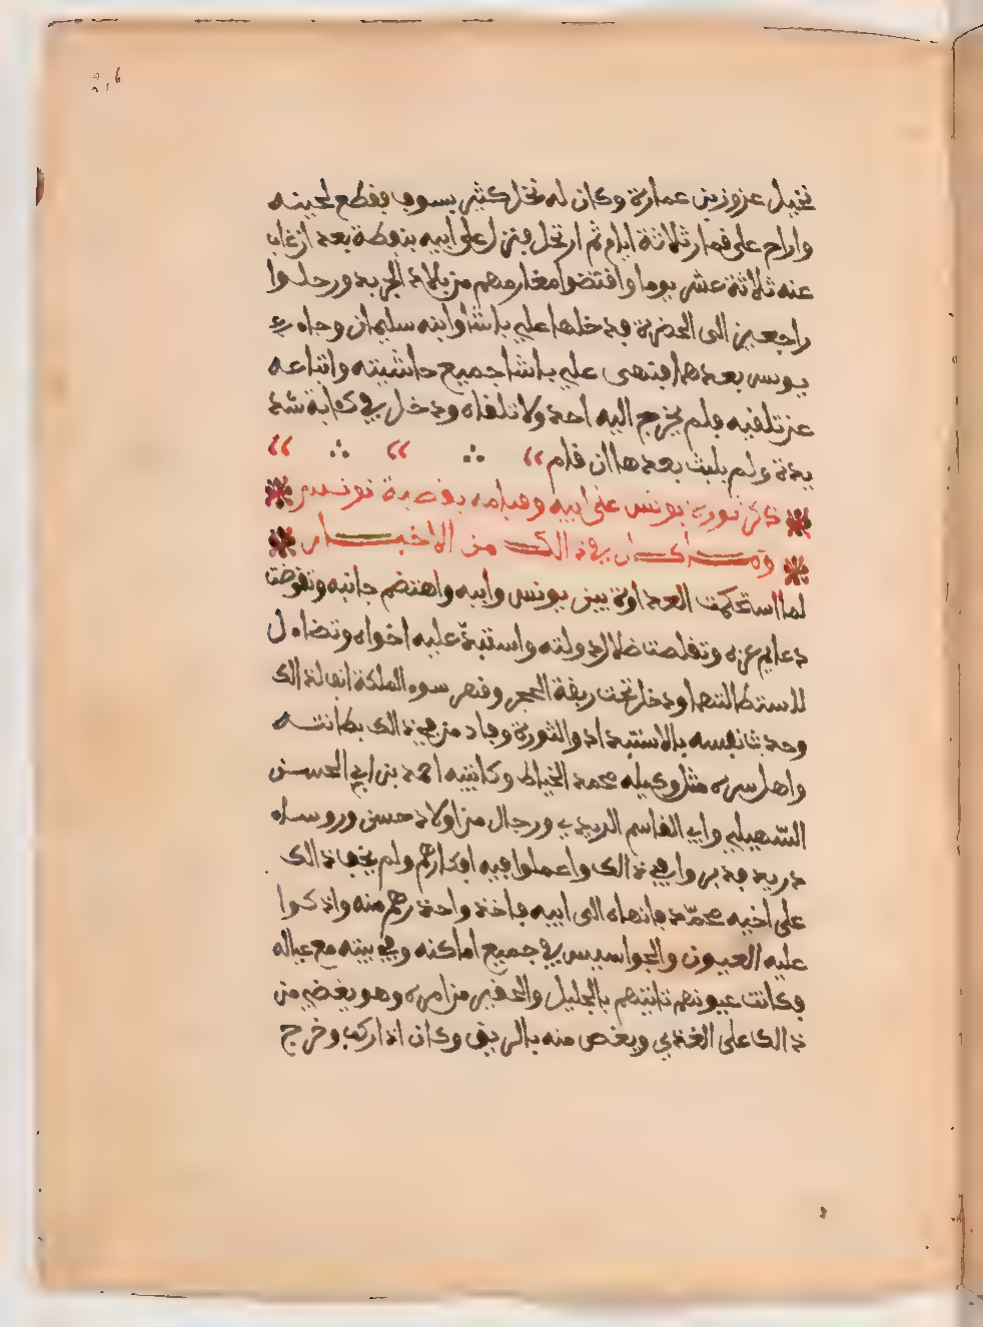 نخيل عزوز بن عمارة وكان له نخل كثير بسوف فقطع لحينه
واراح على قمار ثلاثة ايام ثم ارتحل فنزل على ابيه بنفطة بعد ان غاب
عنه ثلاثة عشر يوما واقتضوا مغارمهم من بلاد الجريد ورحلوا
راجعين الى الحضرة فدخلها علي باشا وابنه سليمان وجاء
يونس بعدهما فنهى علي باشا جميع حاشيته واتباعه
عن تلقيه فلم يخرج اليه احد ولا تلقاه ودخل في كآبة شد
يدة ولم يلبث بعدها ان قام
ذكر ثورة يونس على ابيه وقيامه بقصبة تونس
وما كان في ذالك من الاخبار
لما استحكمت العداوة بين يونس وابيه واهتضم جانبه وتقوضت
دعايم عزه وتقلصت ظلال دولته واستبد عليه اخواه وتضاءل
لاستطالتهما ودخل تحت ربقة الحجر وقهر سورة الملكة انف لذالك
وحدث نفسه بالاستبداد والثورة وفاوض في ذالك بطانته
واهل سره مثل وكيله محمد الخياط وكاتبه احمد بن ابي الحسن
السهيلي وابي القاسم الريدي ورجال من اولاد حسن وروساء
دريد فدبروا في ذالك واعملوا فيه افكارهم ولم يخف ذالك
على اخيه محمد فانهاه الى ابيه فاخذ واحذرهم منه واذكوا
عليه العيون والجواسيس في جميع اماكنه وفي بيته مع عياله
فكانت عيونهم تاتيهم بالجليل والحقير من امره وهو يغضي من
ذالك على القذى ويغص منه بالريق وكان اذا ركب وخرج